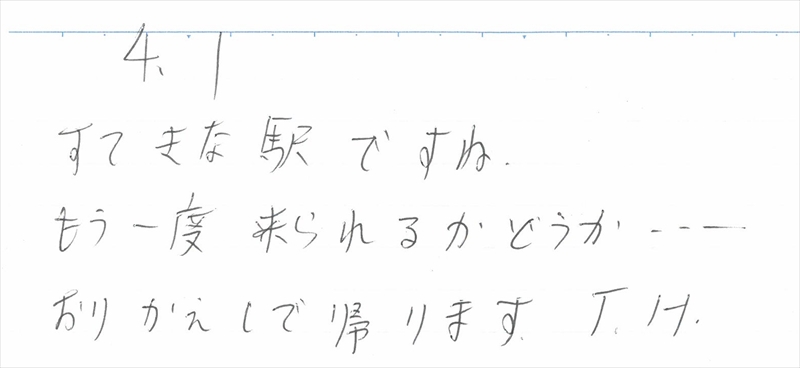 4、1
すてきな駅ですね.
もう一度 来られるかどうか---
おりかえしで帰ります. T.H.